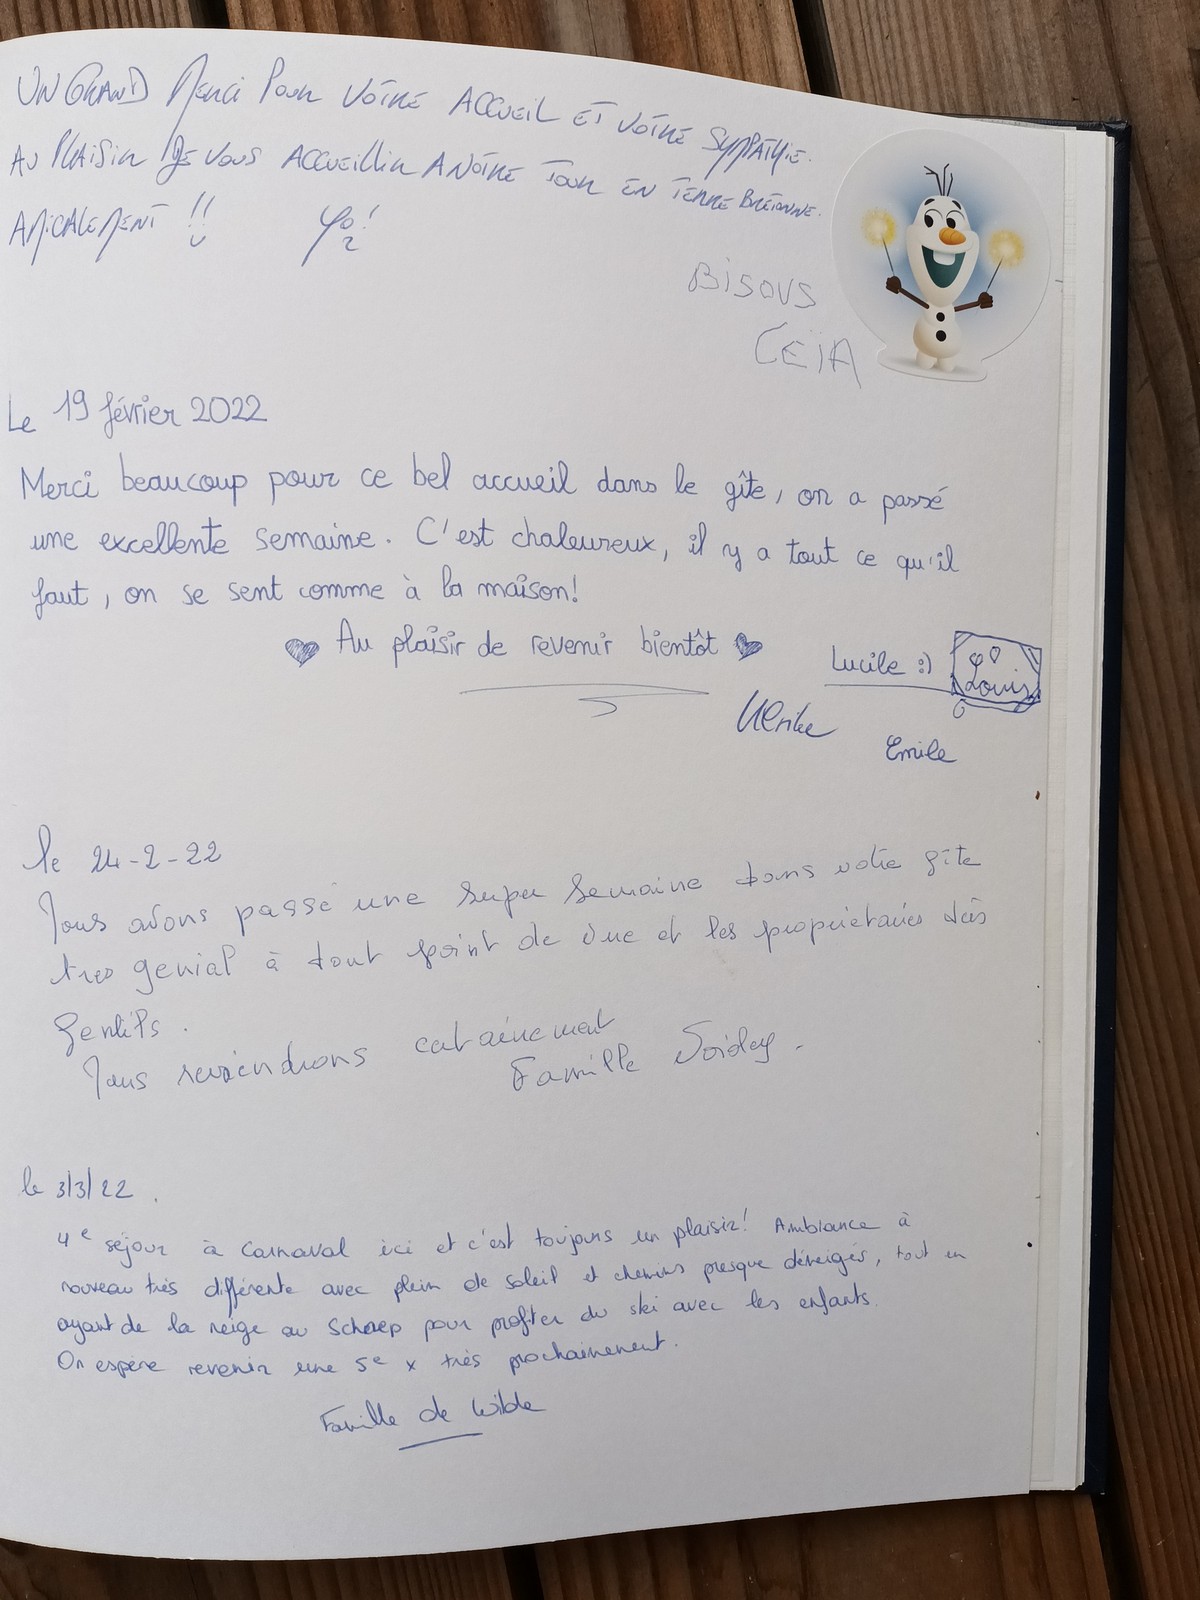 UN GRAND Merci Pour VOTRE ACCUEIL ET VOTRE SYMPATHIE.
AU PLAISIR DE VOUS ACCUEILLIR A NOTRE TOUR EN TERRE BRETONNE.
AMICALEMENT !!
BISOUS
Le 19 février 2022
Merci beaucoup pour ce bel accueil dans le gîte, on a passé
une excellente semaine. C'est chaleureux, il y a tout ce qu'il
faut, on se sent comme à la maison!
Au plaisir de revenir bientôt
Lucile :) Louis
Ulrike
Emile
le 24-2-22
Nous avons passé une super semaine dans votre gîte
tres genial à tout point de vue et les proprietaires très
gentils.
Nous reviendrons certainement
Famille
le 3/3/22.
4e séjour à Carnaval ici et c'est toujours un plaisir! Ambiance à
nouveau très différente avec plein de soleil et chemins presque déneigés, tout en
ayant de la neige au Schnep pour profiter du ski avec les enfants.
On espère revenir une 5e x très prochainement.
Famille de Wilde